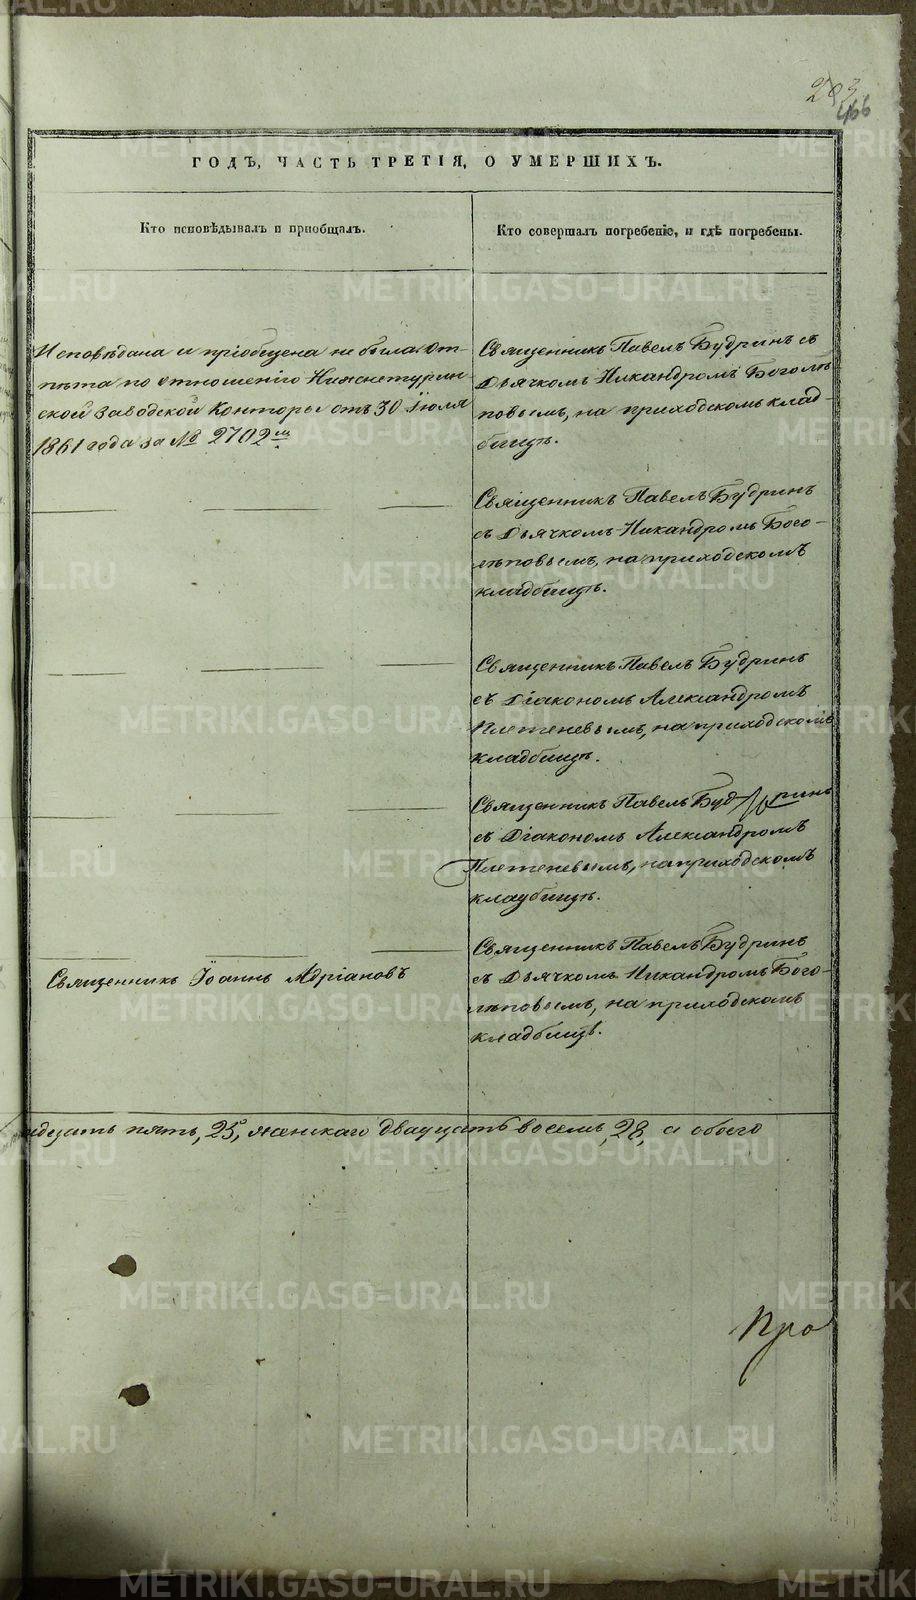 466
ГОДЪ, ЧАСТЬ ТРЕТІЯ, О УМЕРШИХЪ.
Кто исповѣдывалъ и пріобщалъ.
Кто совершалъ погребеніе, и гдѣ погребены.
Исповѣдана и пріобщена не была. От-
пѣта по отношенію Нижнетурин-
ской Заводской Конторы отъ 30 Іюля
1861 года за № 2702м
Священникъ Павелъ Будринъ съ
Дьячкомъ Никандромъ Боголѣ-
повымъ, на приходскомъ клад-
бищѣ.
Священникъ Павелъ Будринъ
съ Дьячкомъ Никандромъ Бого-
лѣповымъ, на приходскомъ
кладбищѣ.
Священникъ Павелъ Будринъ
съ Діакономъ Александромъ
Плетеневымъ, на приходскомъ
кладбищѣ.
Священникъ Павелъ Будринъ
съ Діакономъ Александромъ
Плетеневымъ, на приходскомъ
кладбищѣ.
Священникъ Іоаннъ Адріановъ
Священникъ Павелъ Будринъ
съ Дьячкомъ Никандромъ Бого-
лѣповымъ, на приходскомъ
кладбищѣ.
идцать пять, 25, женскаго двадцать восемь, 28, а обоего
Про
METRIKI.GASO-URAL.RU